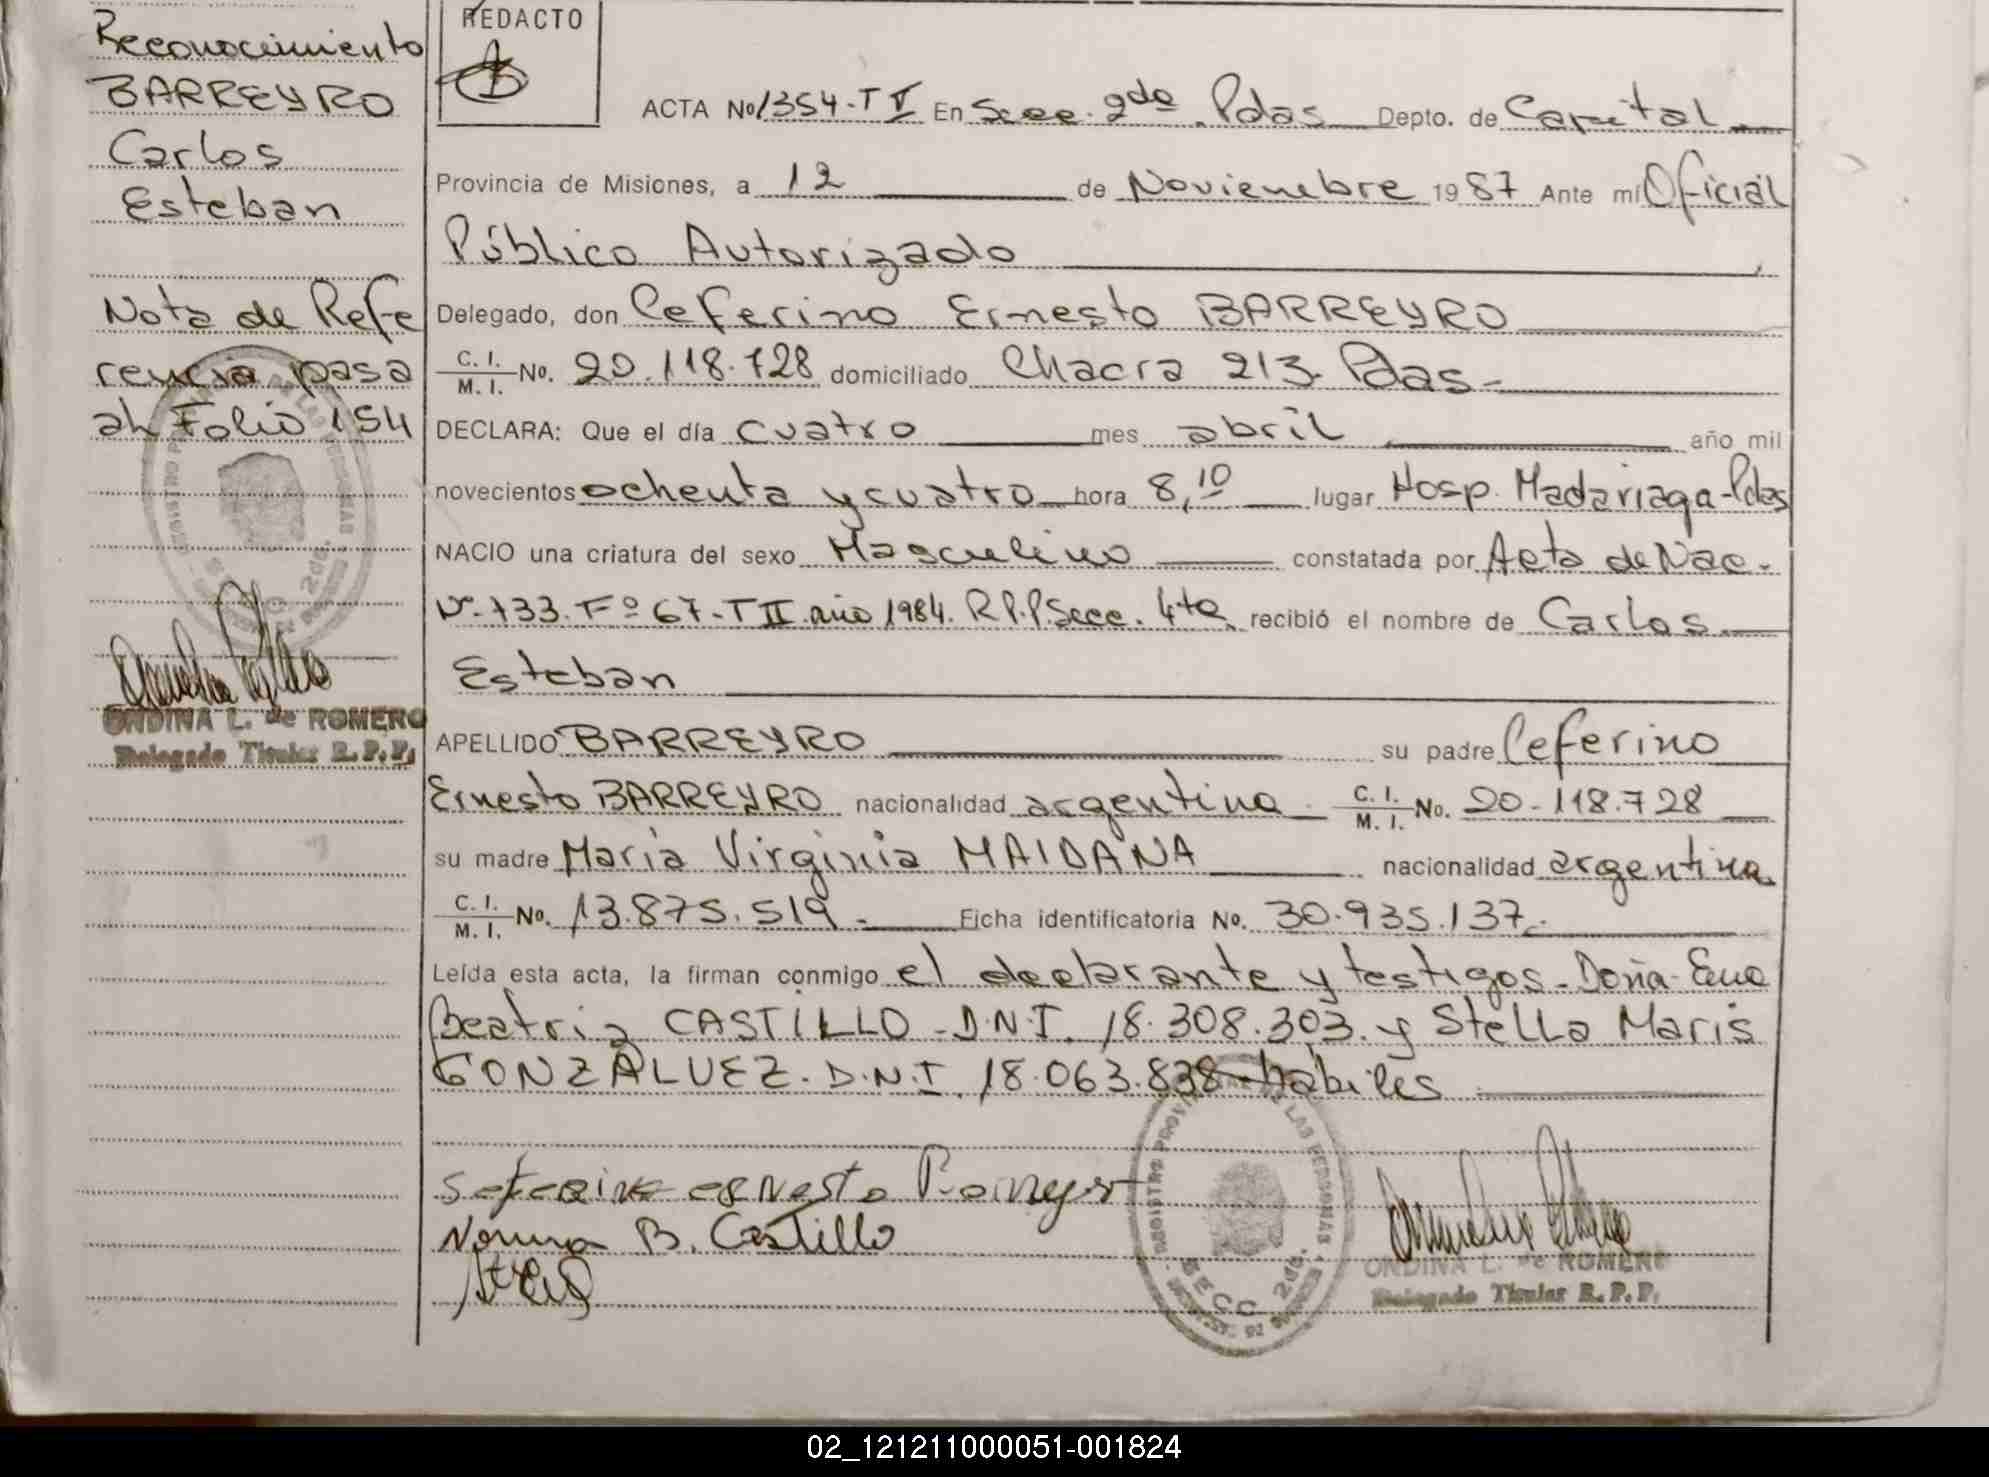 Reconocimiento
BARREYRO
Carlos
Esteban
Nota de Refe
rencia pasa
al Folio 154
ONDINA L. de ROMERO
Delegado Titular R.P.P.
REDACTO
ACTA No 1354-T V En Secc. 2da. Pdas Depto. de Capital
Provincia de Misiones, a 12 de Noviembre 1987 Ante mí Oficial
Público Autorizado
Delegado, don Ceferino Ernesto BARREYRO
C. I. / M. I. No. 20.118.728 domiciliado Chacra 213. Pdas-
DECLARA: Que el día cuatro mes abril año mil
novecientos ochenta y cuatro hora 8,10 lugar Hosp. Madariaga-Pdas
NACIO una criatura del sexo Masculino constatada por Acta de Nac.
Nº 733. Fº 67-T II año 1984. R.P.P. Secc. 4ta recibió el nombre de Carlos
Esteban
APELLIDO BARREYRO su padre Ceferino
Ernesto BARREYRO nacionalidad argentina C. I. / M. I. No. 20-118.728
su madre María Virginia MAIDANA nacionalidad argentina
C. I. / M. I. No. 13.875.519.- Ficha identificatoria No. 30.935.137.-
Leída esta acta, la firman conmigo el declarante y testigos-Doña
Beatriz CASTILLO-D.N.I. 18.308.303. y Stella Maris
GONZALVEZ. D.N.I. 18.063.838-hábiles
Seferino ernesto
Norma B. Castillo
SECC. 2da.
ONDINA L. de ROMERO
Delegado Titular R.P.P.
02_121211000051-001824